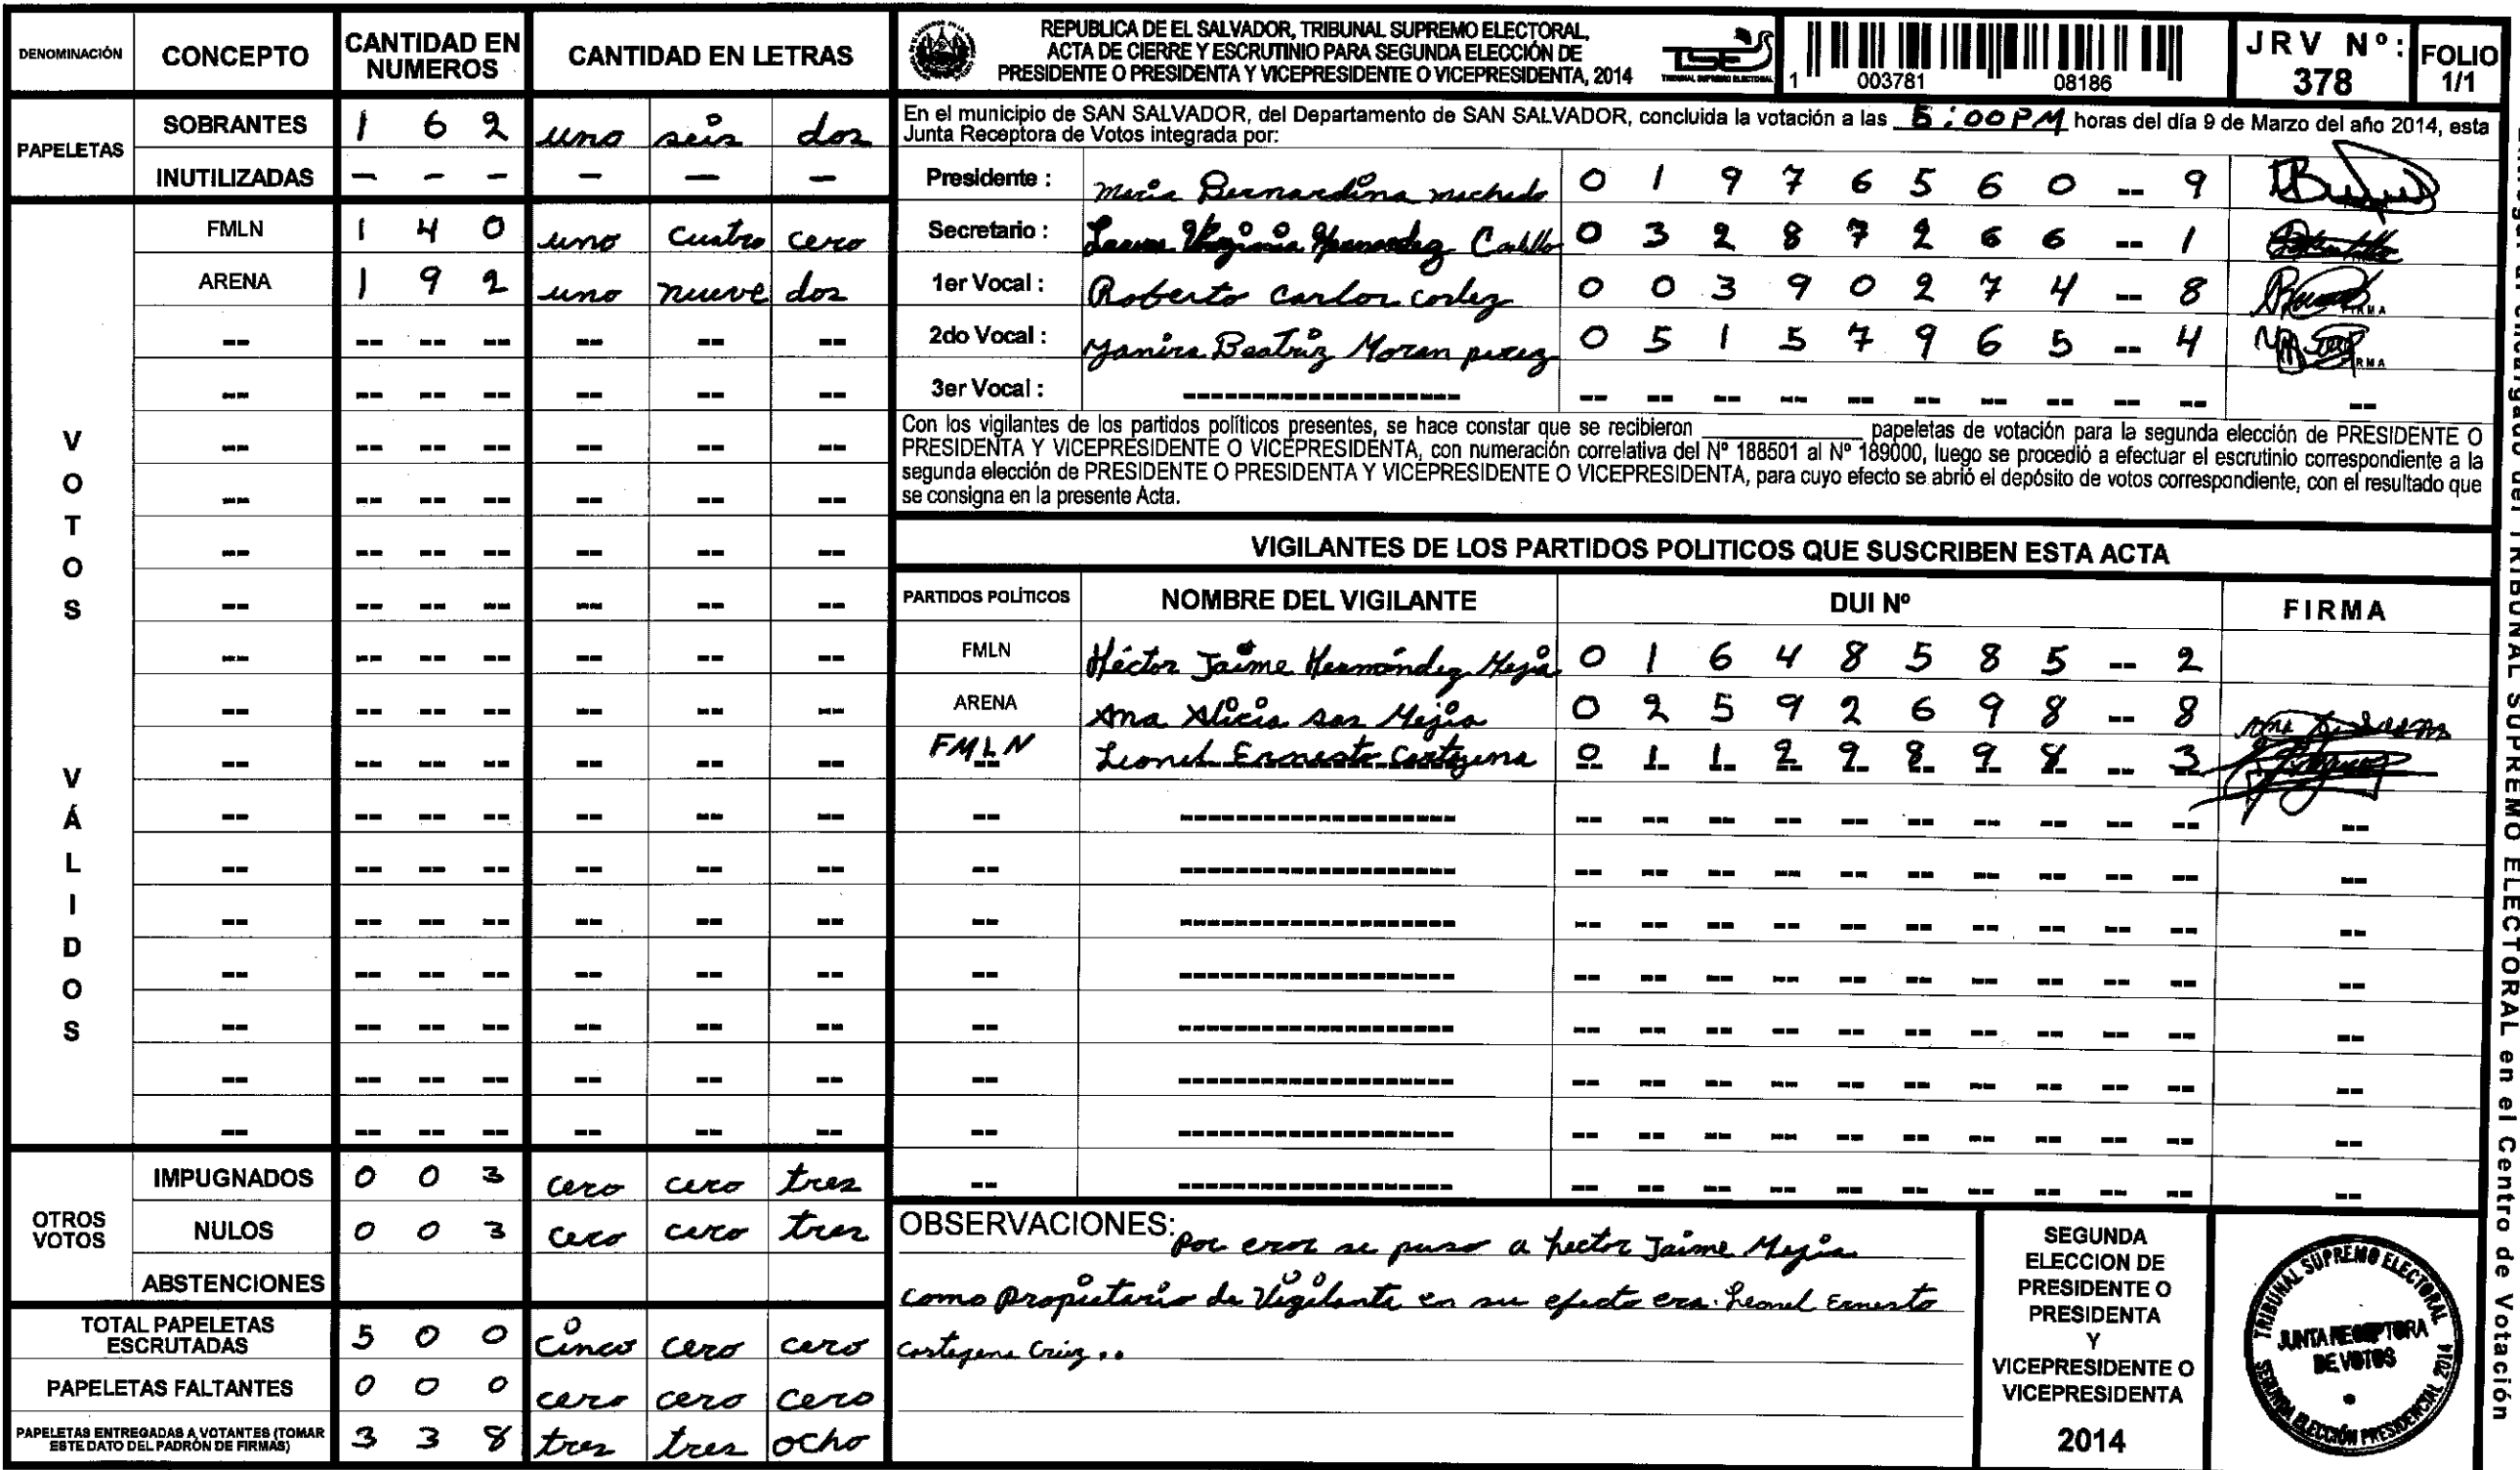 DENOMINACIÓN CONCEPTO CANTIDAD EN NUMEROS CANTIDAD EN LETRAS
PAPELETAS
SOBRANTES 1 6 2 uno seis dos
INUTILIZADAS - - - - - -
VOTOS VÁLIDOS
FMLN 1 4 0 uno cuatro cero
ARENA 1 9 2 uno nueve dos
OTROS VOTOS
IMPUGNADOS 0 0 3 cero cero tres
NULOS 0 0 3 cero cero tres
ABSTENCIONES
TOTAL PAPELETAS ESCRUTADAS 5 0 0 cinco cero cero
PAPELETAS FALTANTES 0 0 0 cero cero cero
PAPELETAS ENTREGADAS A VOTANTES (TOMAR ESTE DATO DEL PADRÓN DE FIRMAS) 3 3 8 tres tres ocho
REPUBLICA DE EL SALVADOR, TRIBUNAL SUPREMO ELECTORAL,
ACTA DE CIERRE Y ESCRUTINIO PARA SEGUNDA ELECCIÓN DE
PRESIDENTE O PRESIDENTA Y VICEPRESIDENTE O VICEPRESIDENTA, 2014
TSE
TRIBUNAL SUPREMO ELECTORAL
1 003781 08186
JRV Nº: 378
FOLIO 1/1
En el municipio de SAN SALVADOR, del Departamento de SAN SALVADOR, concluida la votación a las 5:00 PM horas del día 9 de Marzo del año 2014, esta
Junta Receptora de Votos integrada por:
Presidente : Maria Bernardina machado 0 1 9 7 6 5 6 0 -- 9
Secretario : Virginia Hernandez 0 3 2 8 7 2 6 6 -- 1
1er Vocal : Roberto Carlos cortez 0 0 3 9 0 2 7 4 -- 8
2do Vocal : Yanira Beatriz Moran perez 0 5 1 5 7 9 6 5 -- 4
3er Vocal :
Con los vigilantes de los partidos políticos presentes, se hace constar que se recibieron ________ papeletas de votación para la segunda elección de PRESIDENTE O
PRESIDENTA Y VICEPRESIDENTE O VICEPRESIDENTA, con numeración correlativa del Nº 188501 al Nº 189000, luego se procedió a efectuar el escrutinio correspondiente a la
segunda elección de PRESIDENTE O PRESIDENTA Y VICEPRESIDENTE O VICEPRESIDENTA, para cuyo efecto se abrió el depósito de votos correspondiente, con el resultado que
se consigna en la presente Acta.
VIGILANTES DE LOS PARTIDOS POLITICOS QUE SUSCRIBEN ESTA ACTA
PARTIDOS POLÍTICOS NOMBRE DEL VIGILANTE DUI Nº FIRMA
FMLN Héctor Jaime Hernández Mejía 0 1 6 4 8 5 8 5 -- 2
ARENA Ana Alicia sas Mejia 0 2 5 9 2 6 9 8 -- 8
FMLN Lionel Ernesto Cartagena 0 1 1 2 9 8 9 8 -- 3
OBSERVACIONES: por eror se puso a hector Jaime Mejia
como propietario de Vigilante en su efecto era Leonel Ernesto
Cartegena Cruz..
SEGUNDA
ELECCION DE
PRESIDENTE O
PRESIDENTA
Y
VICEPRESIDENTE O
VICEPRESIDENTA
2014
TRIBUNAL SUPREMO ELECTORAL
JUNTA RECEPTORA
DE VOTOS
SEGUNDA ELECCIÓN PRESIDENCIAL 2014
encargado del TRIBUNAL SUPREMO ELECTORAL en el Centro de Votación